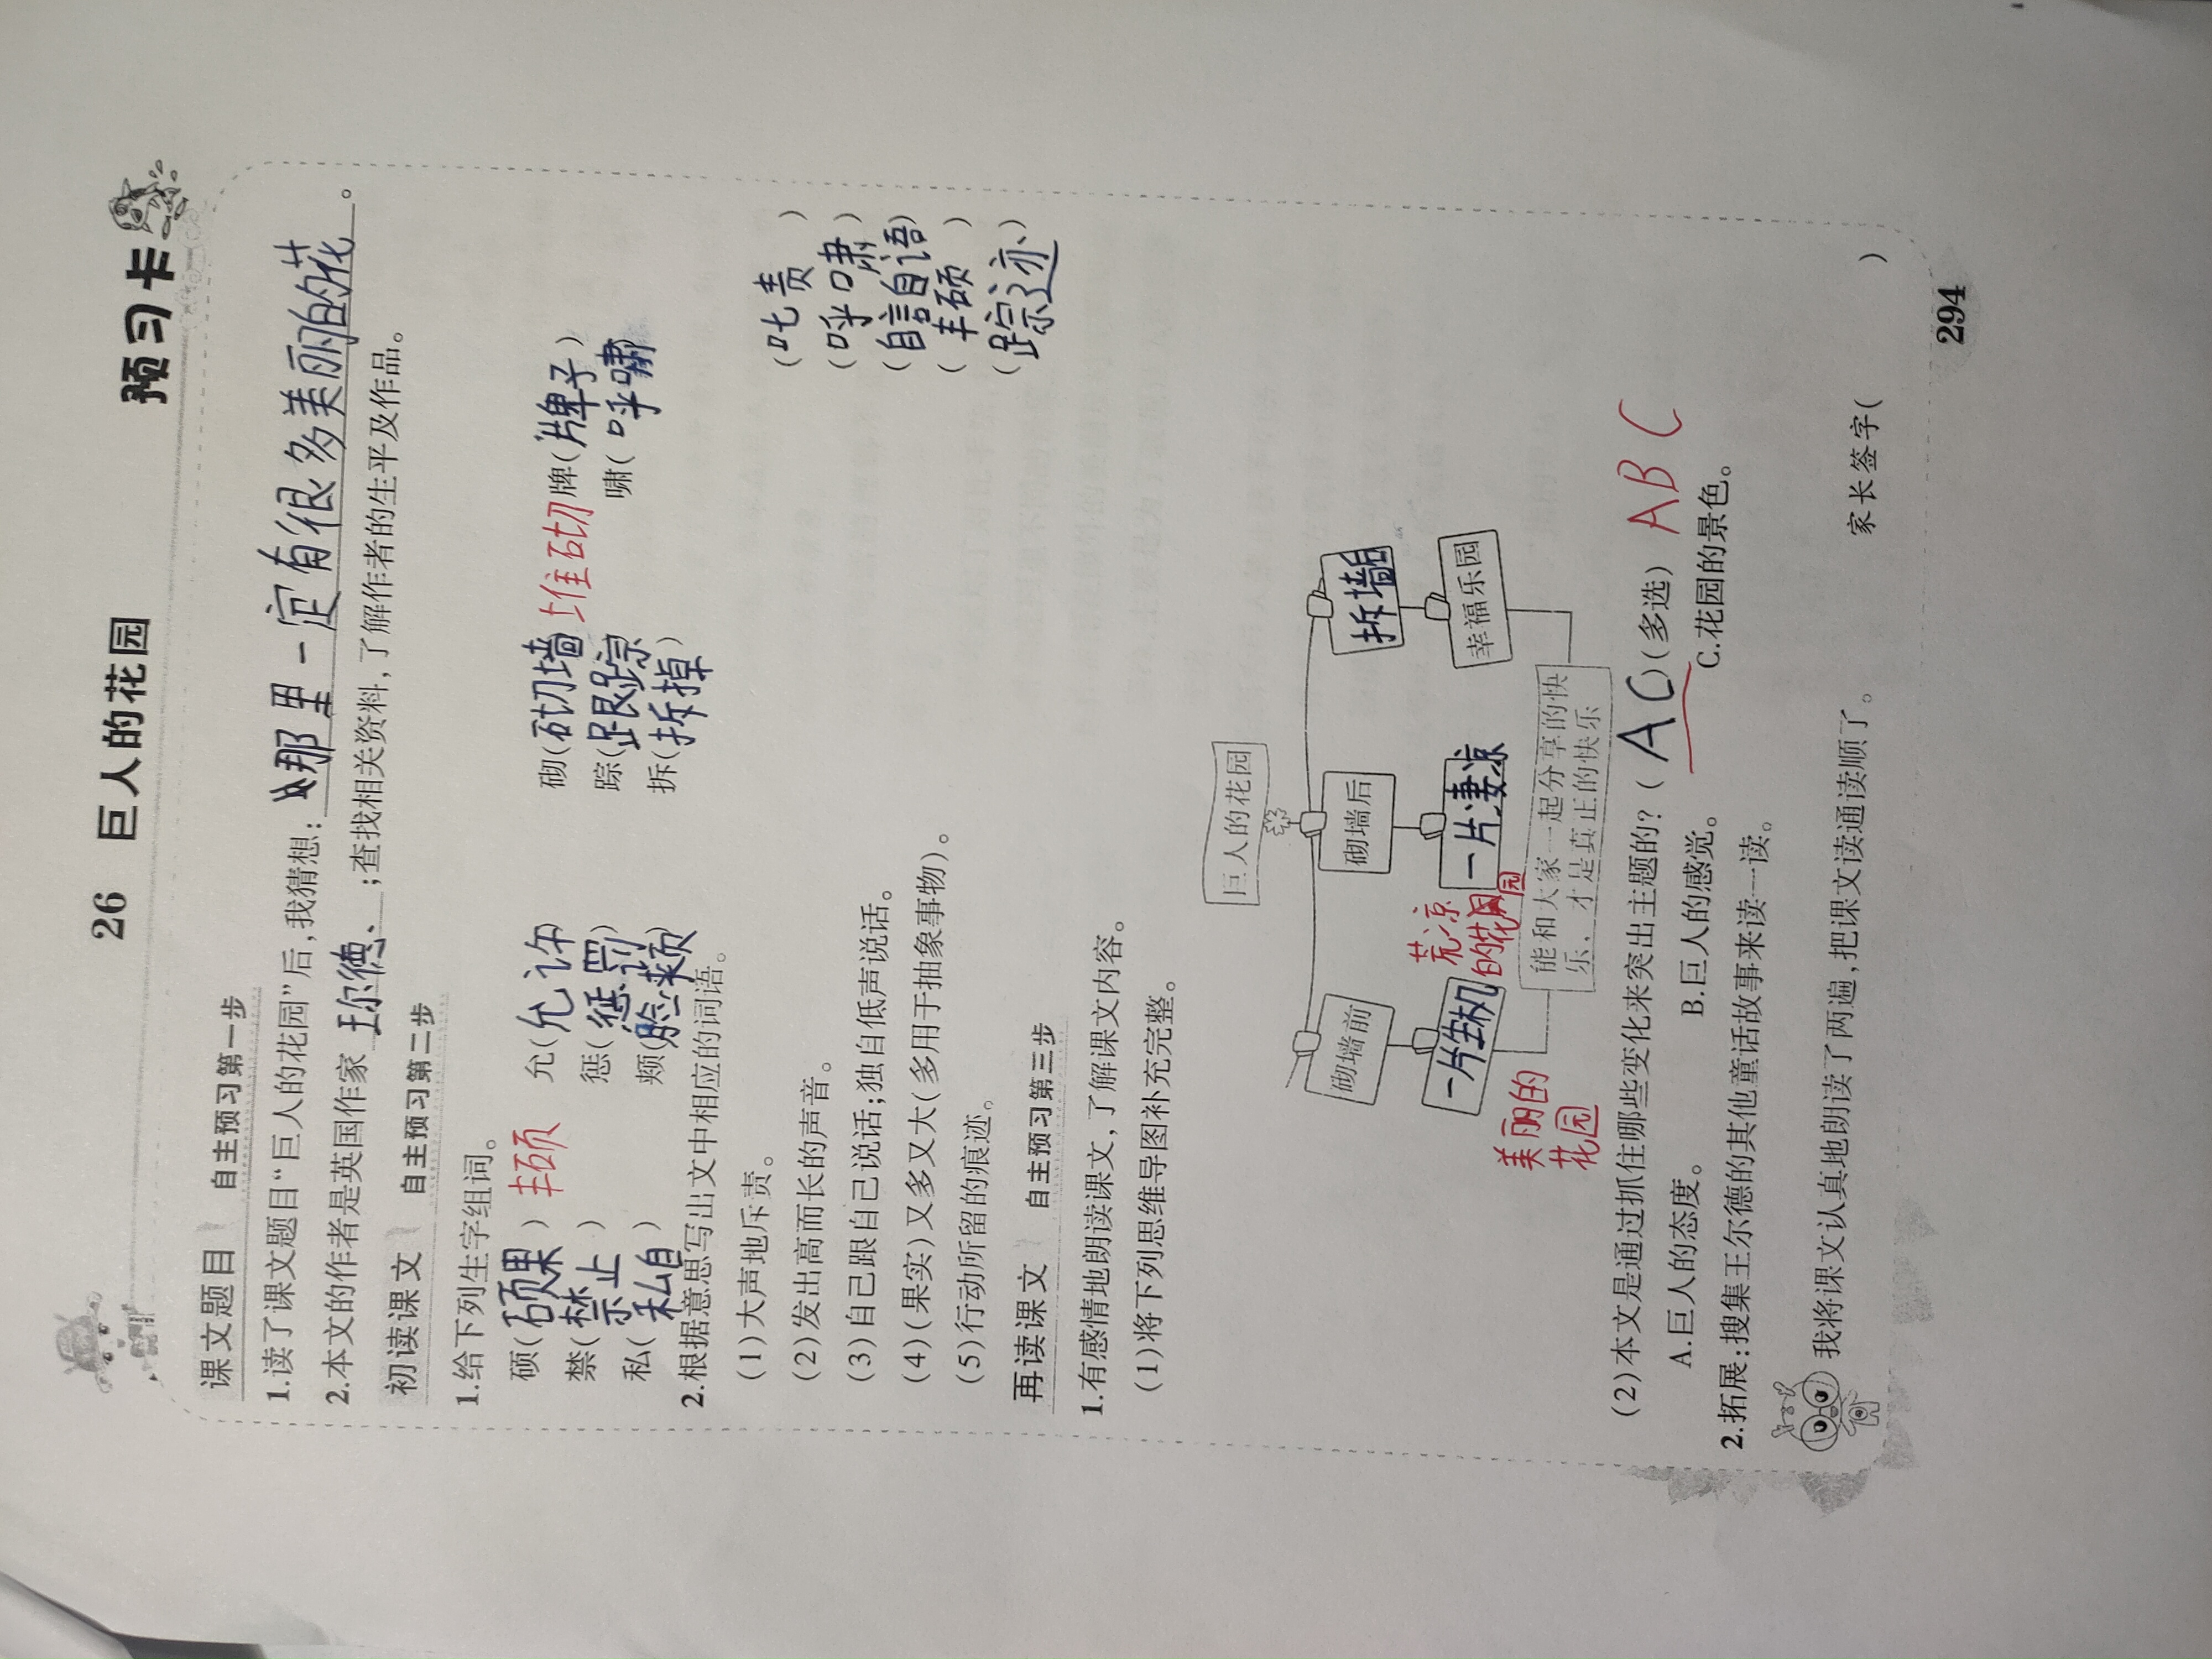 26 巨人的花园
预习卡
课文题目 自主预习第一步
1.读了课文题目“巨人的花园”后,我猜想:那里一定有很多美丽的花。
2.本文的作者是英国作家王尔德、;查找相关资料,了解作者的生平及作品。
初读课文 自主预习第二步
1.给下列生字组词。
硕(硕果) 丰硕 允(允许 砌(砌墙 堆砌 牌(牌子)
禁(禁止) 惩(惩罚) 踪(跟踪 啸(呼啸
私(私自) 颊(脸颊) 拆(拆掉)
2.根据意思写出文中相应的词语。
(1)大声地斥责。 (叱责)
(2)发出高而长的声音。 (呼啸)
(3)自己跟自己说话;独自低声说话。 (自言自语)
(4)(果实)又多又大(多用于抽象事物)。 (丰硕)
(5)行动所留的痕迹。 (踪迹)
再读课文 自主预习第三步
1.有感情地朗读课文,了解课文内容。
(1)将下列思维导图补充完整。
巨人的花园
砌墙前 砌墙后 拆墙后
一片生机 一片凄凉 幸福乐园
美丽的花园 荒凉的花园
能和大家一起分享的快
乐,才是真正的快乐
(2)本文是通过抓住哪些变化来突出主题的?(AC)(多选) ABC
A.巨人的态度。 B.巨人的感觉。 C.花园的景色。
2.拓展:搜集王尔德的其他童话故事来读一读。
我将课文认真地朗读了两遍,把课文读通读顺了。
家长签字( )
294